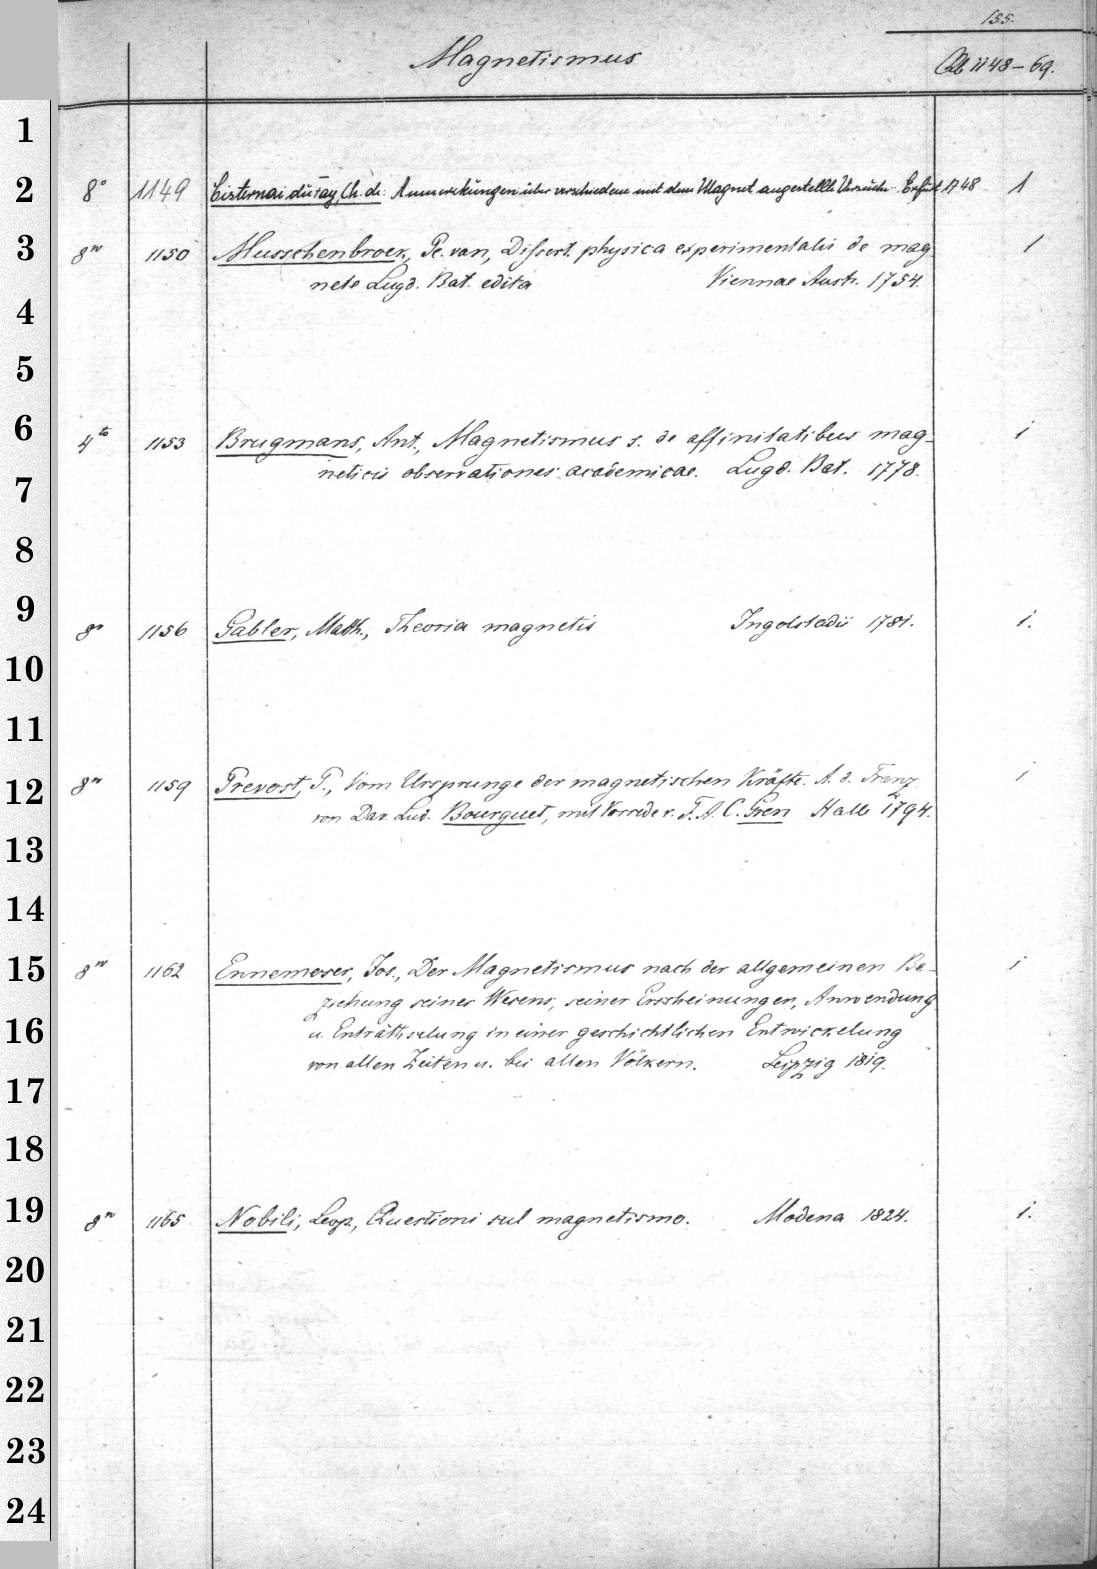 155.
Magnetismus
1148-69.
1
2
3
4
5
6
7
8
9
10
11
12
13
14
15
16
17
18
19
20
21
22
23
24
8° 1149 Cisternai du Fay, Ch. de: Anmerkungen über verschiedene mit dem Magnet angestellte Versuche. Erfurt 1748 1
8vo 1150 Musschenbroek, Pe. van, Dissert. physica experimentalis de mag-
nete Lugd. Bat. edita Viennae Austr. 1754. 1
4to 1153 Brugmans, Ant., Magnetismus s. de affinitatibus mag-
neticis observationes academicae. Lugd. Bat. 1778. 1
8o 1156 Gabler, Math., Theoria magnetis Ingolstadii 1781. 1.
8vo 1159 Prevost, P., Vom Ursprunge der magnetischen Kräfte. A. d. Franz.
von Dav. Lud. Bourguet, mit Vorrede v. F. A. C. Gren Halle 1794. 1
8vo 1162 Ennemoser, Jos., Der Magnetismus nach der allgemeinen Be-
ziehung seines Wesens, seiner Erscheinungen, Anwendung
u. Enträthselung in einer geschichtlichen Entwickelung
von allen Zeiten u. bei allen Völkern. Leipzig 1819. 1
8vo 1165 Nobili, Leop., Questioni sul magnetismo. Modena 1824. 1.